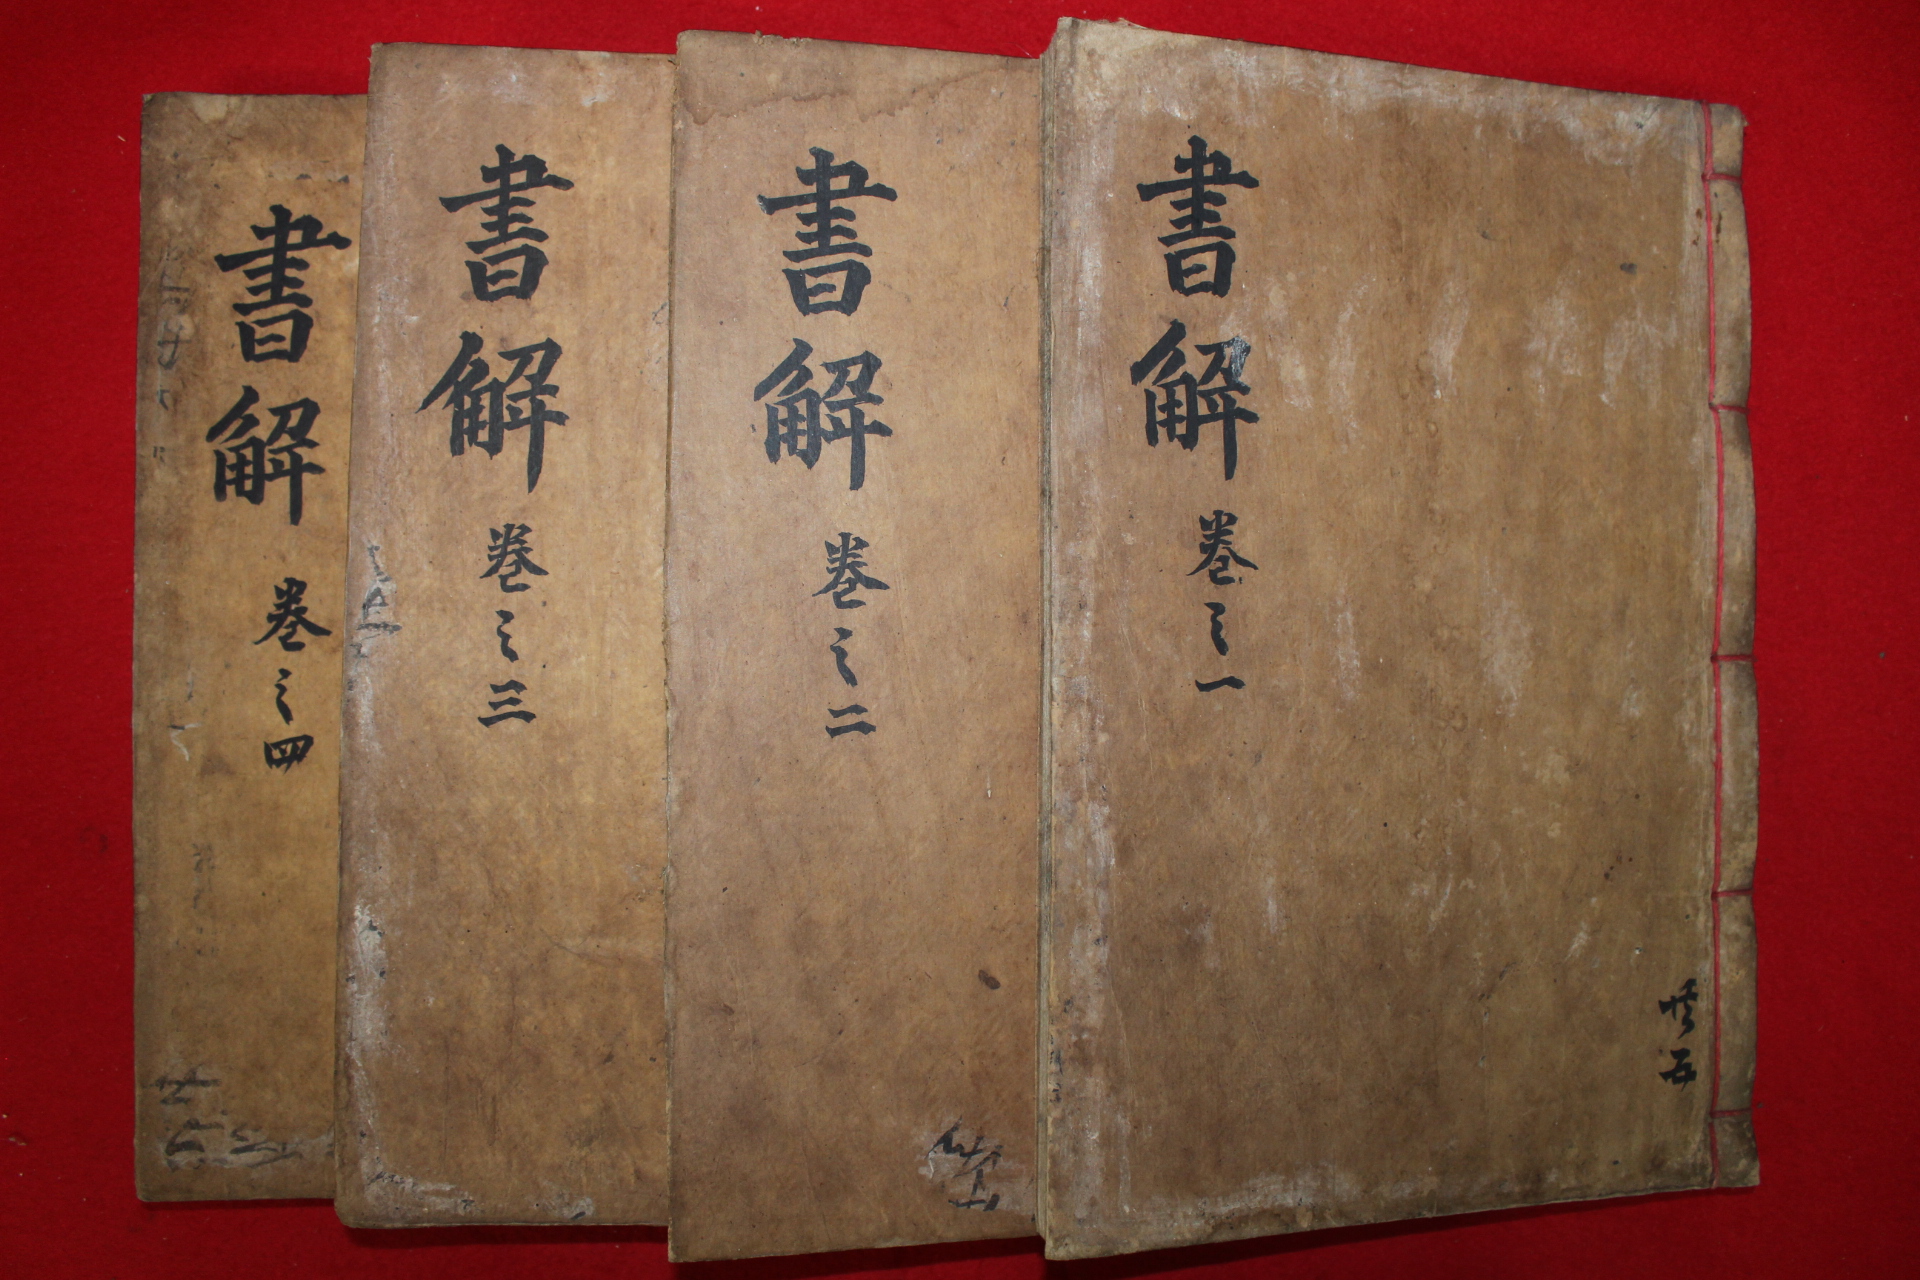 書解 卷之一
書解 卷之二
書解 卷之三
書解 卷之四